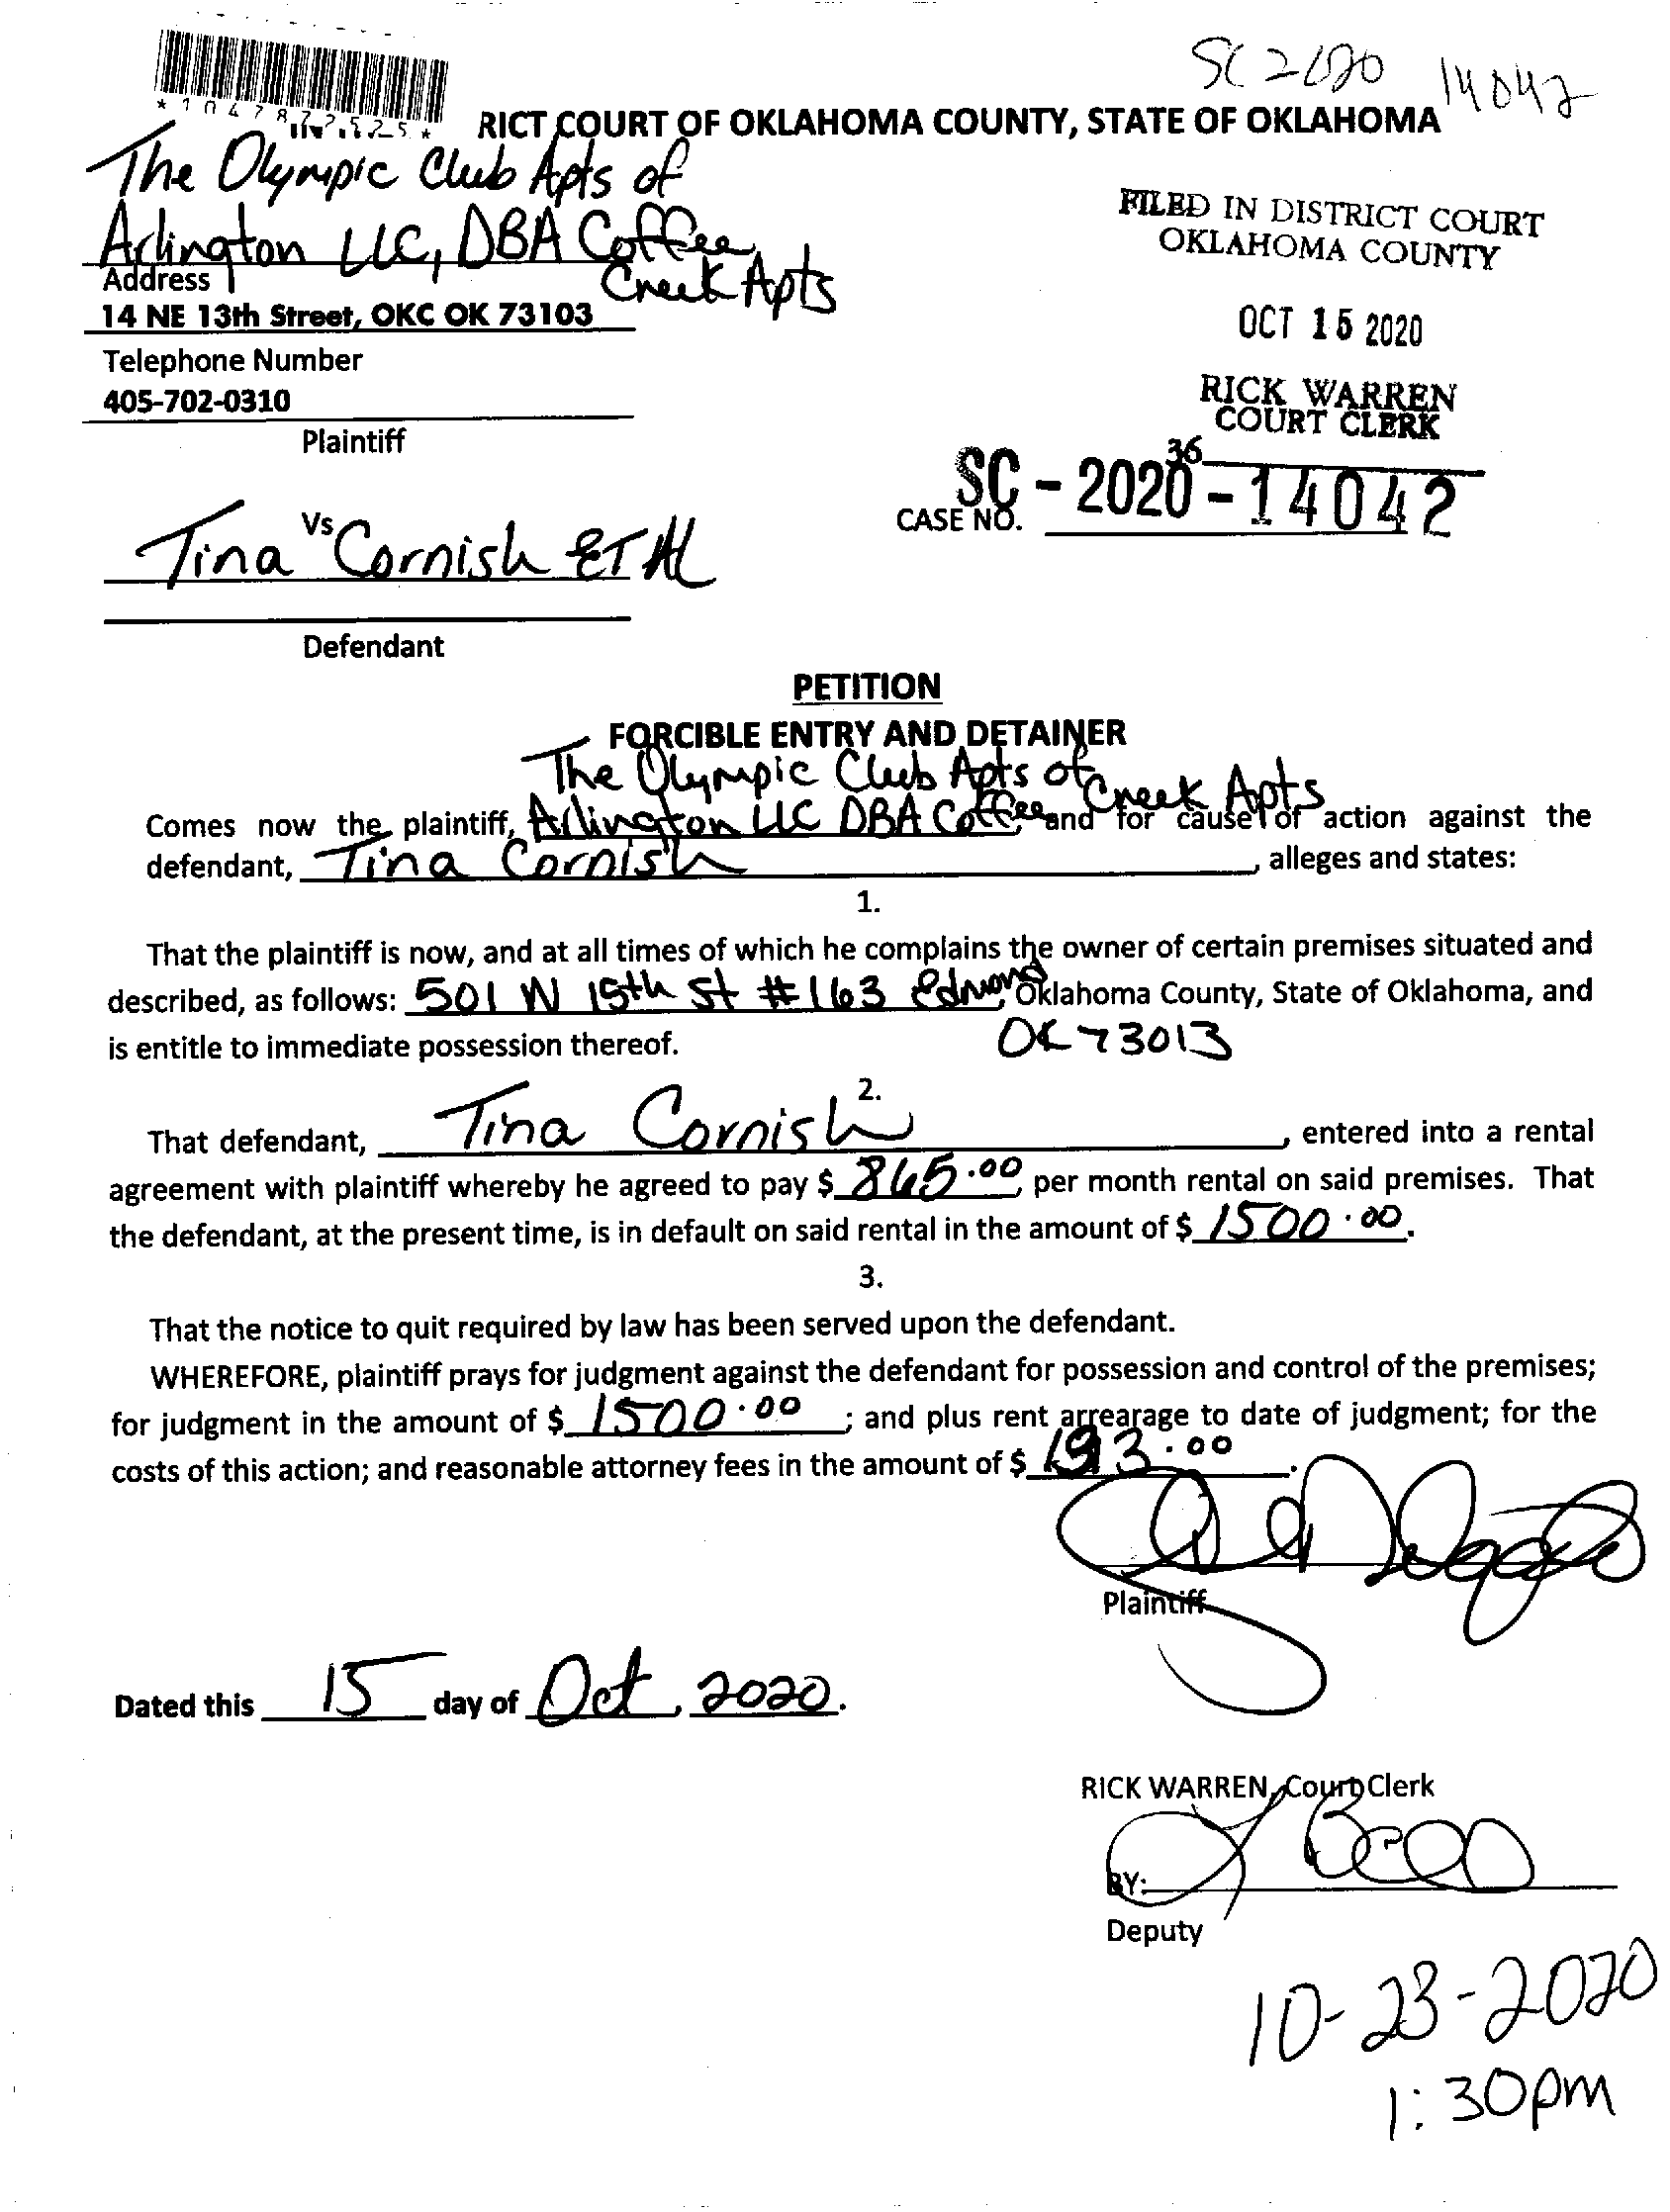 SC 2020 14042
*1047877525*
RICT COURT OF OKLAHOMA COUNTY, STATE OF OKLAHOMA
The Olympic Club Apts of
Arlington LLC, DBA Coffee
Creek Apts
Address
14 NE 13th Street, OKC OK 73103
Telephone Number
405-702-0310
Plaintiff
FILED IN DISTRICT COURT
OKLAHOMA COUNTY
OCT 15 2020
RICK WARREN
COURT CLERK
36
SC - 2020 - 14042
CASE NO.
Vs
Tina Cornish ET AL
Defendant
PETITION
FORCIBLE ENTRY AND DETAINER
The Olympic Club Apts of Creek Apts
Comes now the plaintiff, Arlington LLC DBA Coffee and for cause of action against the
defendant, Tina Cornish, alleges and states:
1.
That the plaintiff is now, and at all times of which he complains the owner of certain premises situated and
described, as follows: 501 W 15th St #163 Edmond Oklahoma County, State of Oklahoma, and
is entitle to immediate possession thereof. OK 73013
2.
That defendant, Tina Cornish, entered into a rental
agreement with plaintiff whereby he agreed to pay $ 865.00 per month rental on said premises. That
the defendant, at the present time, is in default on said rental in the amount of $ 1500.00.
3.
That the notice to quit required by law has been served upon the defendant.
WHEREFORE, plaintiff prays for judgment against the defendant for possession and control of the premises;
for judgment in the amount of $ 1500.00; and plus rent arrearage to date of judgment; for the
costs of this action; and reasonable attorney fees in the amount of $ 193.00.
Plaintiff
Dated this 15 day of Oct, 2020.
RICK WARREN, Court Clerk
BY:
Deputy
10-23-2020
1:30pm